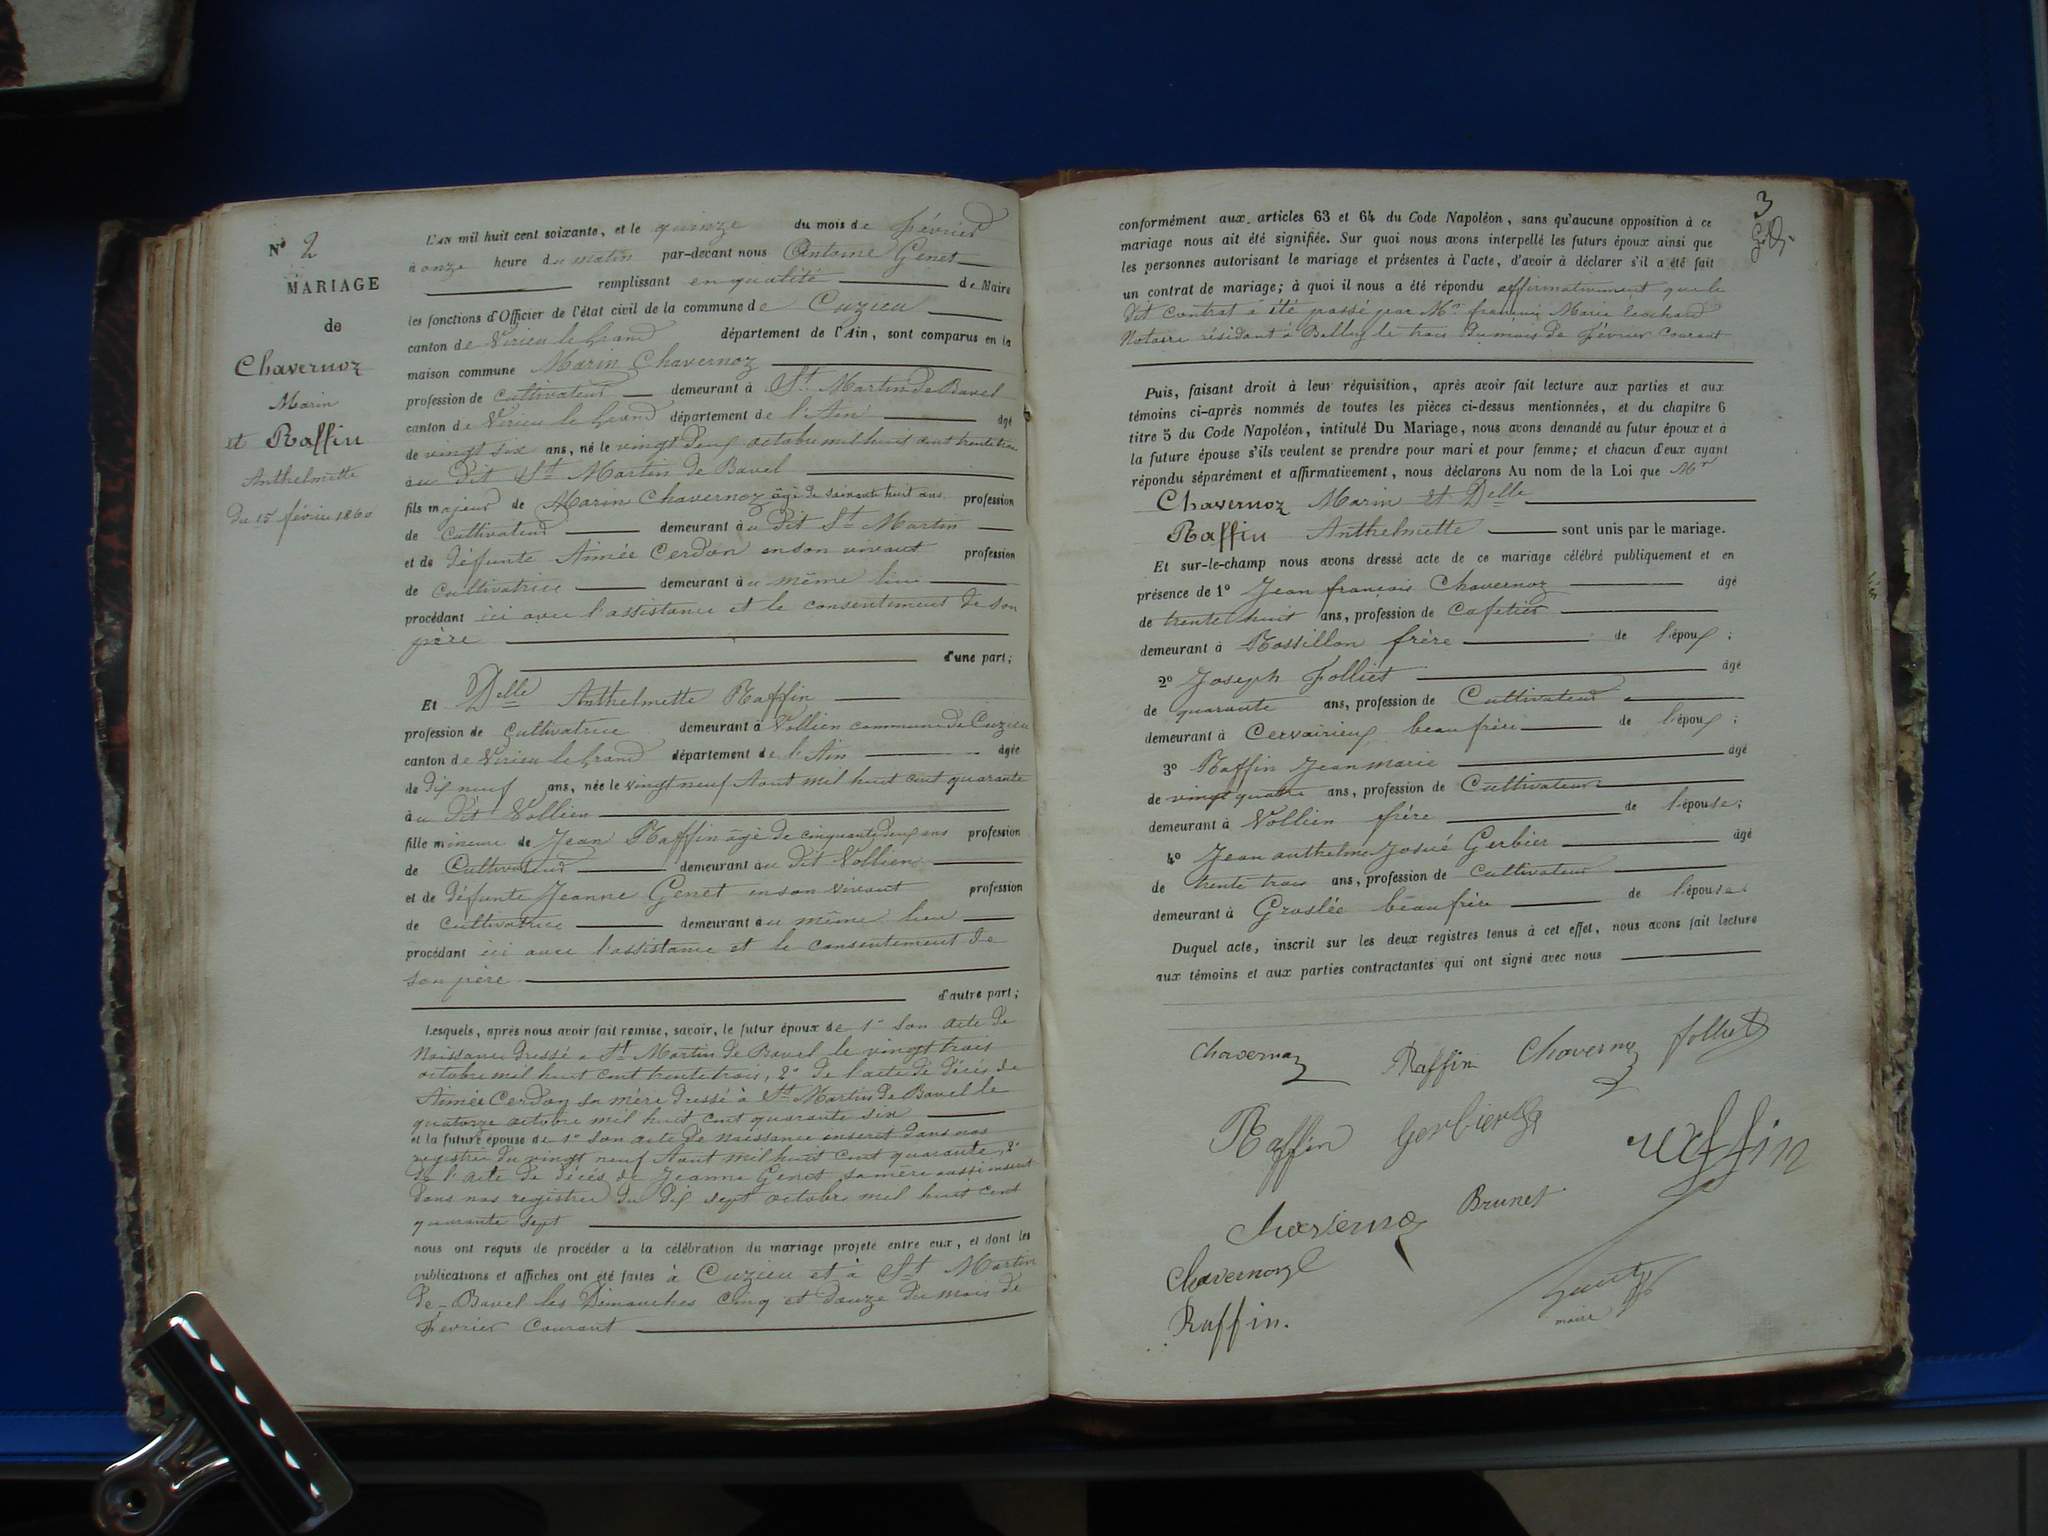 N° 2
MARIAGE
de
Chavernoz
Marin
et Raffin
Anthelmette
du 15 février 1860
L'AN mil huit cent soixante, et le quinze du mois de février
à onze heure du matin par-devant nous Antoine Genet
remplissant en qualité de Maire
les fonctions d'Officier de l'état civil de la commune de Cuzieu
canton de Virieu le Grand département de l'Ain, sont comparus en la
maison commune Marin Chavernoz
profession de cultivateur demeurant à St Martin de Bavel
canton de Virieu le Grand département de l'Ain âgé
de vingt six ans, né le vingt deux octobre mil huit cent trente trois
à u dit St Martin de Bavel
fils majeur de Marin Chavernoz âgé de soixante huit ans profession
de Cultivateur demeurant à u dit St Martin
et de défunte Aimée Cerdon en son vivant profession
de Cultivatrice demeurant à u même lieu
procédant ici avec l'assistance et le consentement de son
père
d'une part;
Et Delle Anthelmette Raffin
profession de Cultivatrice demeurant à Vollien commune de Cuzieu
canton de Virieu le Grand département de l'Ain âgée
de dix neuf ans, née le vingt neuf Aout mil huit cent quarante
à u dit Vollien
fille mineure de Jean Raffin âgé de cinquante deux ans profession
de Cultivateur demeurant à u dit Vollien
et de défunte Jeanne Genet en son vivant profession
de Cultivatrice demeurant à u même lieu
procédant ici avec l'assistance et le consentement de
son père
d'autre part;
Lesquels, après nous avoir fait remise, savoir, le futur époux de 1° son acte de
Naissance dressé à St Martin de Bavel le vingt trois
octobre mil huit cent trente trois, 2° de l'acte de décès de
Aimée Cerdon sa mère dressé à St Martin de Bavel le
quatorze octobre mil huit cent quarante six
et la future épouse de 1° son acte de Naissance inscrit dans nos
registres du vingt neuf Aout mil huit cent quarante, 2°
de l'acte de décés de Jeanne Genet sa mère aussi inscrit
dans nos registres du dix sept octobre mil huit cent
quarante sept
nous ont requis de procéder à la célébration du mariage projeté entre eux, et dont les
publications et affiches ont été faites à Cuzieu et à St Martin
de Bavel les Dimanches Cinq et douze du mois de
Février Courant
3
conformément aux articles 63 et 64 du Code Napoléon, sans qu'aucune opposition à ce
mariage nous ait été signifiée. Sur quoi nous avons interpellé les futurs époux ainsi que
les personnes autorisant le mariage et présentes à l'acte, d'avoir à déclarer s'il a été fait
un contrat de mariage; à quoi il nous a été répondu affirmativement que le
dit Contrat a été passé par Me françois Marie
Notaire résidant à Belley le trois du mois de Février Courant
Puis, faisant droit à leur réquisition, après avoir fait lecture aux parties et aux
témoins ci-après nommés de toutes les pièces ci-dessus mentionnées, et du chapitre 6
titre 5 du Code Napoléon, intitulé Du Mariage, nous avons demandé au futur époux et à
la future épouse s'ils veulent se prendre pour mari et pour femme; et chacun d'eux ayant
répondu séparément et affirmativement, nous déclarons Au nom de la Loi que Mr
Chavernoz Marin et Delle
Raffin Anthelmette sont unis par le mariage.
Et sur-le-champ nous avons dressé acte de ce mariage célébré publiquement et en
présence de 1° Jean françois Chavernoz âgé
de trente huit ans, profession de Cafetier
demeurant à Rossillon frère de l'époux;
2° Joseph Folliet âgé
de quarante ans, profession de Cultivateur
demeurant à Cervairieux beau frère de l'époux;
3° Raffin Jean marie âgé
de vingt quatre ans, profession de Cultivateur
demeurant à Vollien frère de l'épouse;
4° Jean anthelme Josué Gerbier âgé
de trente trois ans, profession de Cultivateur
demeurant à Groslée beau frère de l'épouse.
Duquel acte, inscrit sur les deux registres tenus à cet effet, nous avons fait lecture
aux témoins et aux parties contractantes qui ont signé avec nous
Chavernoz Raffin Chavernoz folliet
Raffin Gerbier raffin
Chavernoz Brunet
Chavernoz
Raffin.
maire